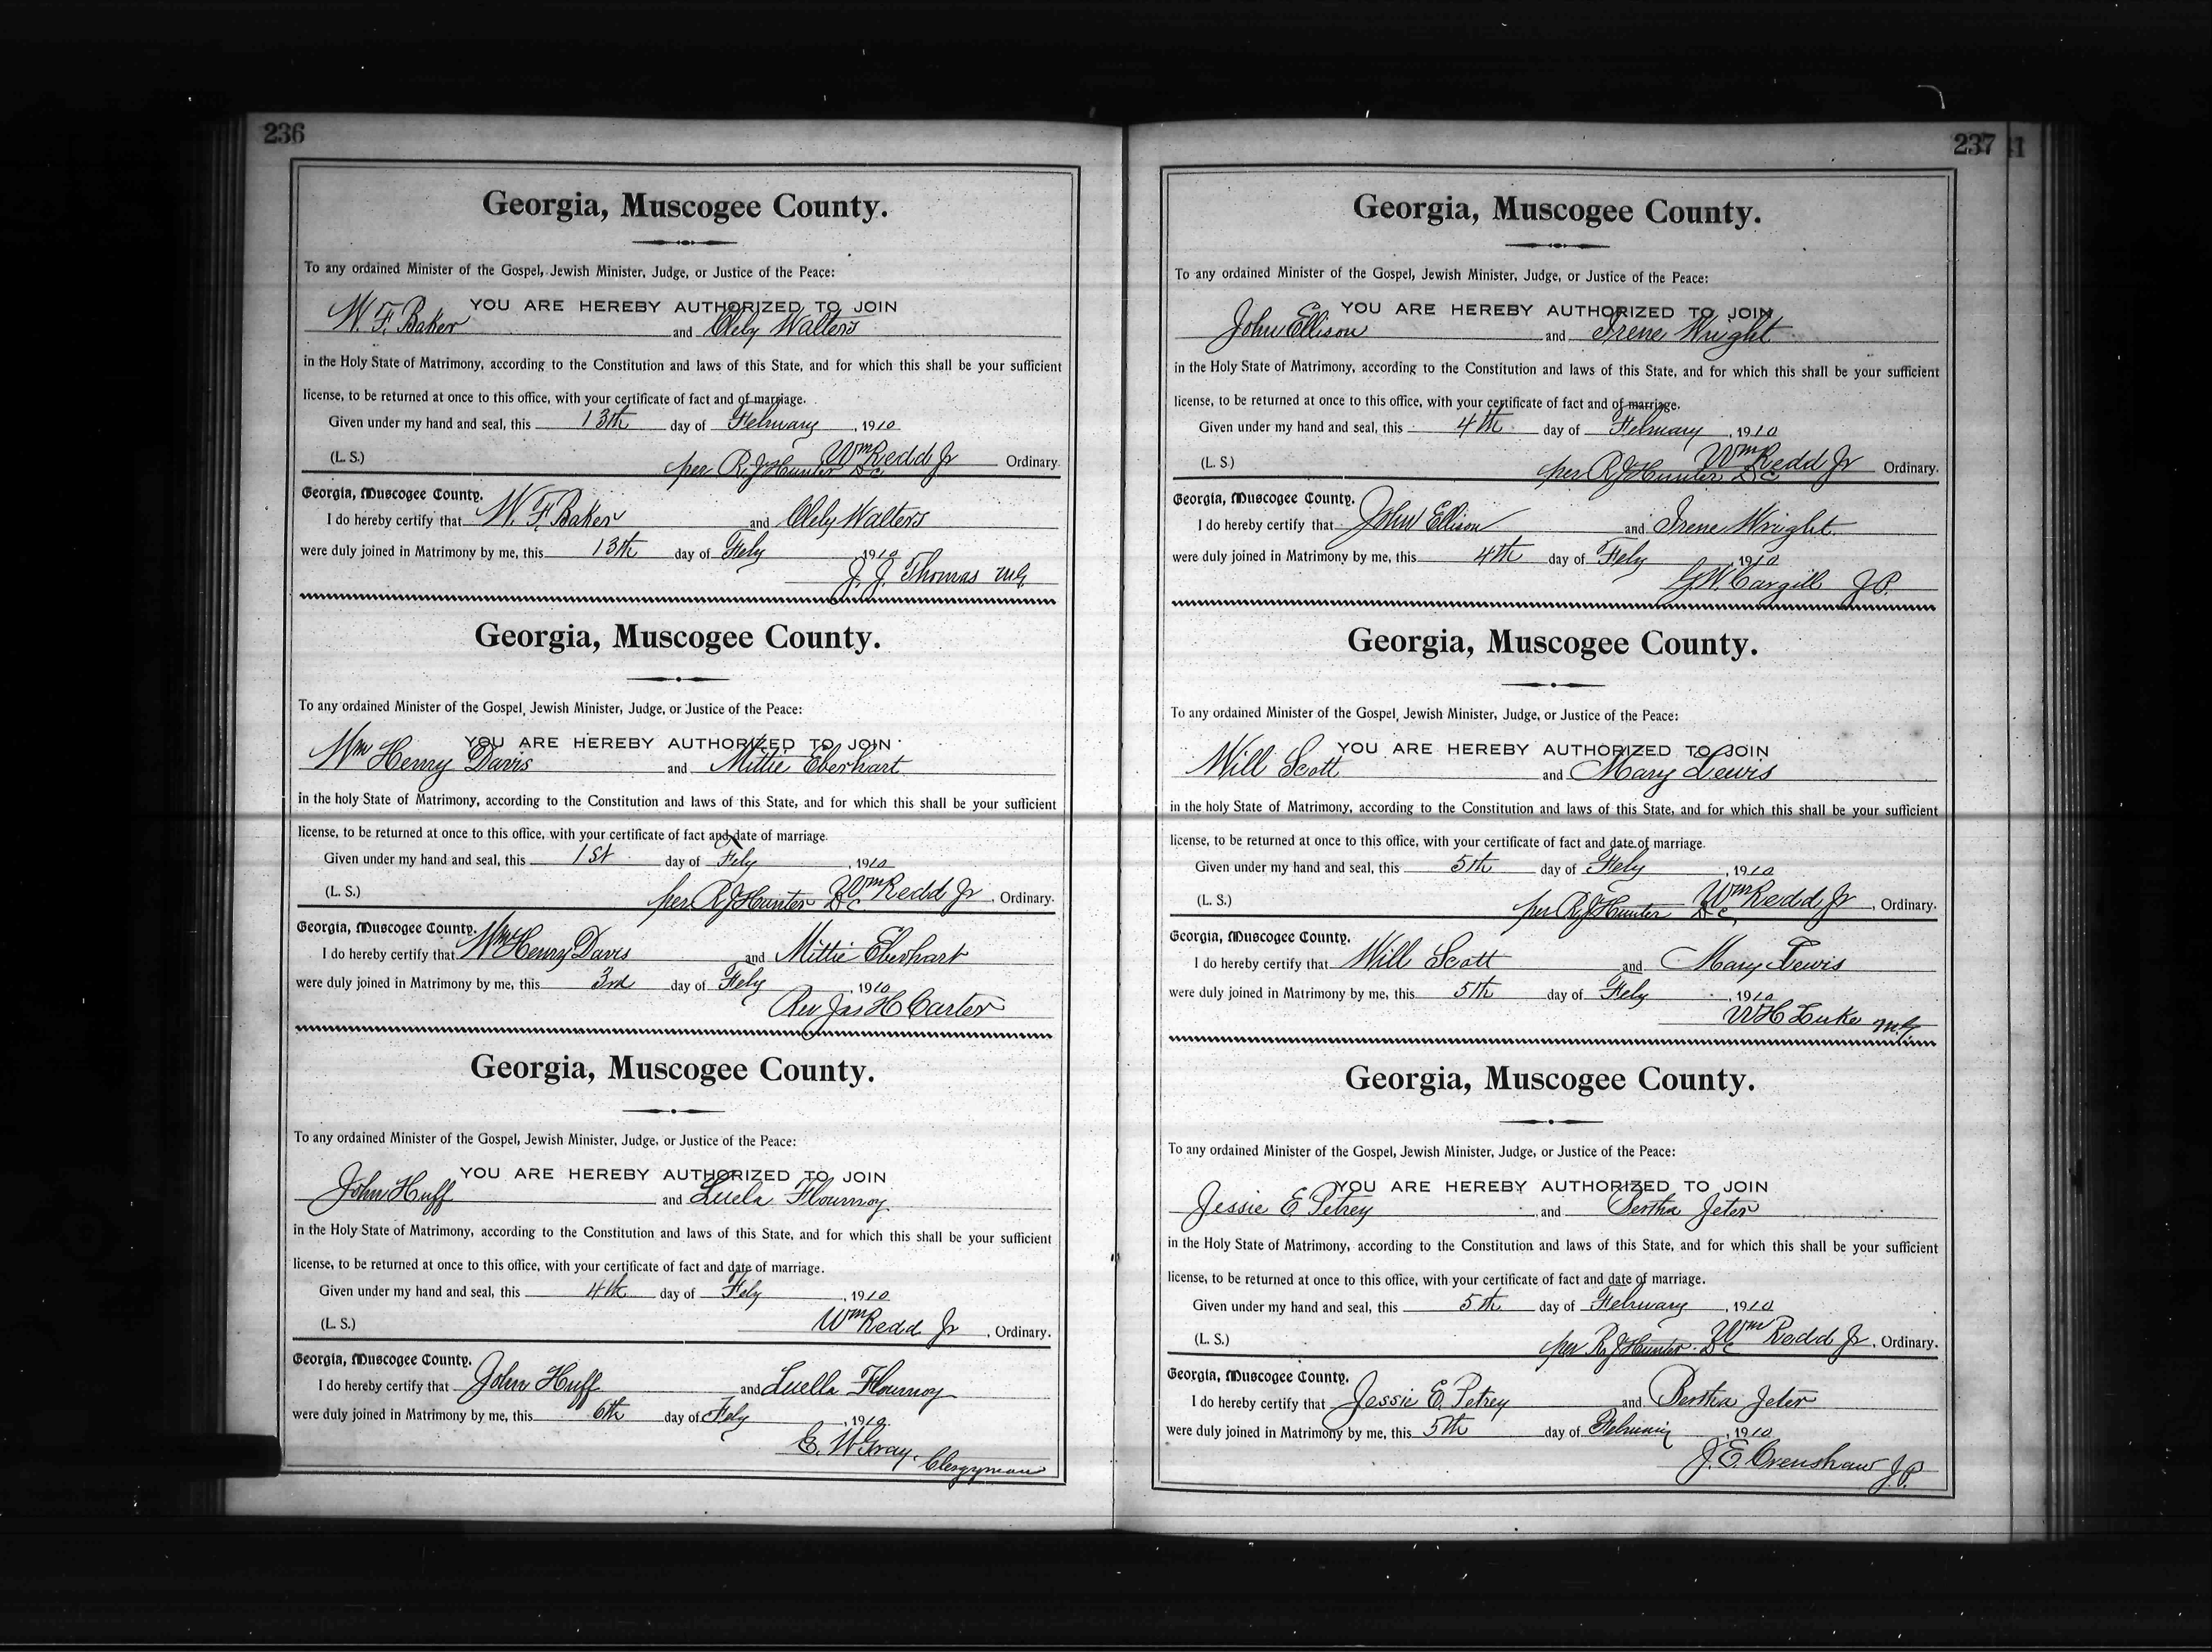 236
Georgia, Muscogee County.
To any ordained Minister of the Gospel, Jewish Minister, Judge, or Justice of the Peace:
YOU ARE HEREBY AUTHORIZED TO JOIN
W. F. Baker and Walters
in the Holy State of Matrimony, according to the Constitution and laws of this State, and for which this shall be your sufficient
license, to be returned at once to this office, with your certificate of fact and of marriage.
Given under my hand and seal, this 13th day of February, 1910
(L. S.) Wm Redd Jr Ordinary.
per R. J. Hunter D C
Georgia, Muscogee County.
I do hereby certify that W. F. Baker and Walters
were duly joined in Matrimony by me, this 13th day of Feby 1910
J. J. Thomas M G
Georgia, Muscogee County.
To any ordained Minister of the Gospel, Jewish Minister, Judge, or Justice of the Peace:
YOU ARE HEREBY AUTHORIZED TO JOIN
Wm Henry Davis and Mittie Eberhart
in the holy State of Matrimony, according to the Constitution and laws of this State, and for which this shall be your sufficient
license, to be returned at once to this office, with your certificate of fact and date of marriage.
Given under my hand and seal, this 1st day of Feby, 1910
(L. S.) per R J Hunter D C Wm Redd Jr, Ordinary.
Georgia, Muscogee County.
I do hereby certify that Wm Henry Davis and Mittie Eberhart
were duly joined in Matrimony by me, this 3rd day of Feby, 1910
Rev Jas H Carter
Georgia, Muscogee County.
To any ordained Minister of the Gospel, Jewish Minister, Judge, or Justice of the Peace:
YOU ARE HEREBY AUTHORIZED TO JOIN
John Huff and Luela Flournoy
in the Holy State of Matrimony, according to the Constitution and laws of this State, and for which this shall be your sufficient
license, to be returned at once to this office, with your certificate of fact and date of marriage.
Given under my hand and seal, this 4th day of Feby, 1910
(L. S.) Wm Redd Jr, Ordinary.
Georgia, Muscogee County.
I do hereby certify that John Huff and Luella Flournoy
were duly joined in Matrimony by me, this 6th day of Feby, 1910
E. W Gray, Clergyman
237
Georgia, Muscogee County.
To any ordained Minister of the Gospel, Jewish Minister, Judge, or Justice of the Peace:
YOU ARE HEREBY AUTHORIZED TO JOIN
John Ellison and Irene Wright
in the Holy State of Matrimony, according to the Constitution and laws of this State, and for which this shall be your sufficient
license, to be returned at once to this office, with your certificate of fact and of marriage.
Given under my hand and seal, this 4th day of February, 1910
(L. S.) Wm Redd Jr Ordinary.
per R J Hunter D C
Georgia, Muscogee County.
I do hereby certify that John Ellison and Irene Wright
were duly joined in Matrimony by me, this 4th day of Feby 1910
G W. Cargill J P.
Georgia, Muscogee County.
To any ordained Minister of the Gospel, Jewish Minister, Judge, or Justice of the Peace:
YOU ARE HEREBY AUTHORIZED TO JOIN
Will Scott and Mary Lewis
in the holy State of Matrimony, according to the Constitution and laws of this State, and for which this shall be your sufficient
license, to be returned at once to this office, with your certificate of fact and date of marriage.
Given under my hand and seal, this 5th day of Feby, 1910
(L. S.) per R J Hunter D C Wm Redd Jr, Ordinary.
Georgia, Muscogee County.
I do hereby certify that Will Scott and Mary Lewis
were duly joined in Matrimony by me, this 5th day of Feby, 1910
W H Luke M.G.
Georgia, Muscogee County.
To any ordained Minister of the Gospel, Jewish Minister, Judge, or Justice of the Peace:
YOU ARE HEREBY AUTHORIZED TO JOIN
Jessie E Petrey and Bertha Jeter
in the Holy State of Matrimony, according to the Constitution and laws of this State, and for which this shall be your sufficient
license, to be returned at once to this office, with your certificate of fact and date of marriage.
Given under my hand and seal, this 5th day of February, 1910
(L. S.) per R J Hunter D C Wm Redd Jr, Ordinary.
Georgia, Muscogee County.
I do hereby certify that Jessie E. Petrey and Bertha Jeter
were duly joined in Matrimony by me, this 5th day of February, 1910
J. E. Crenshaw J.P.